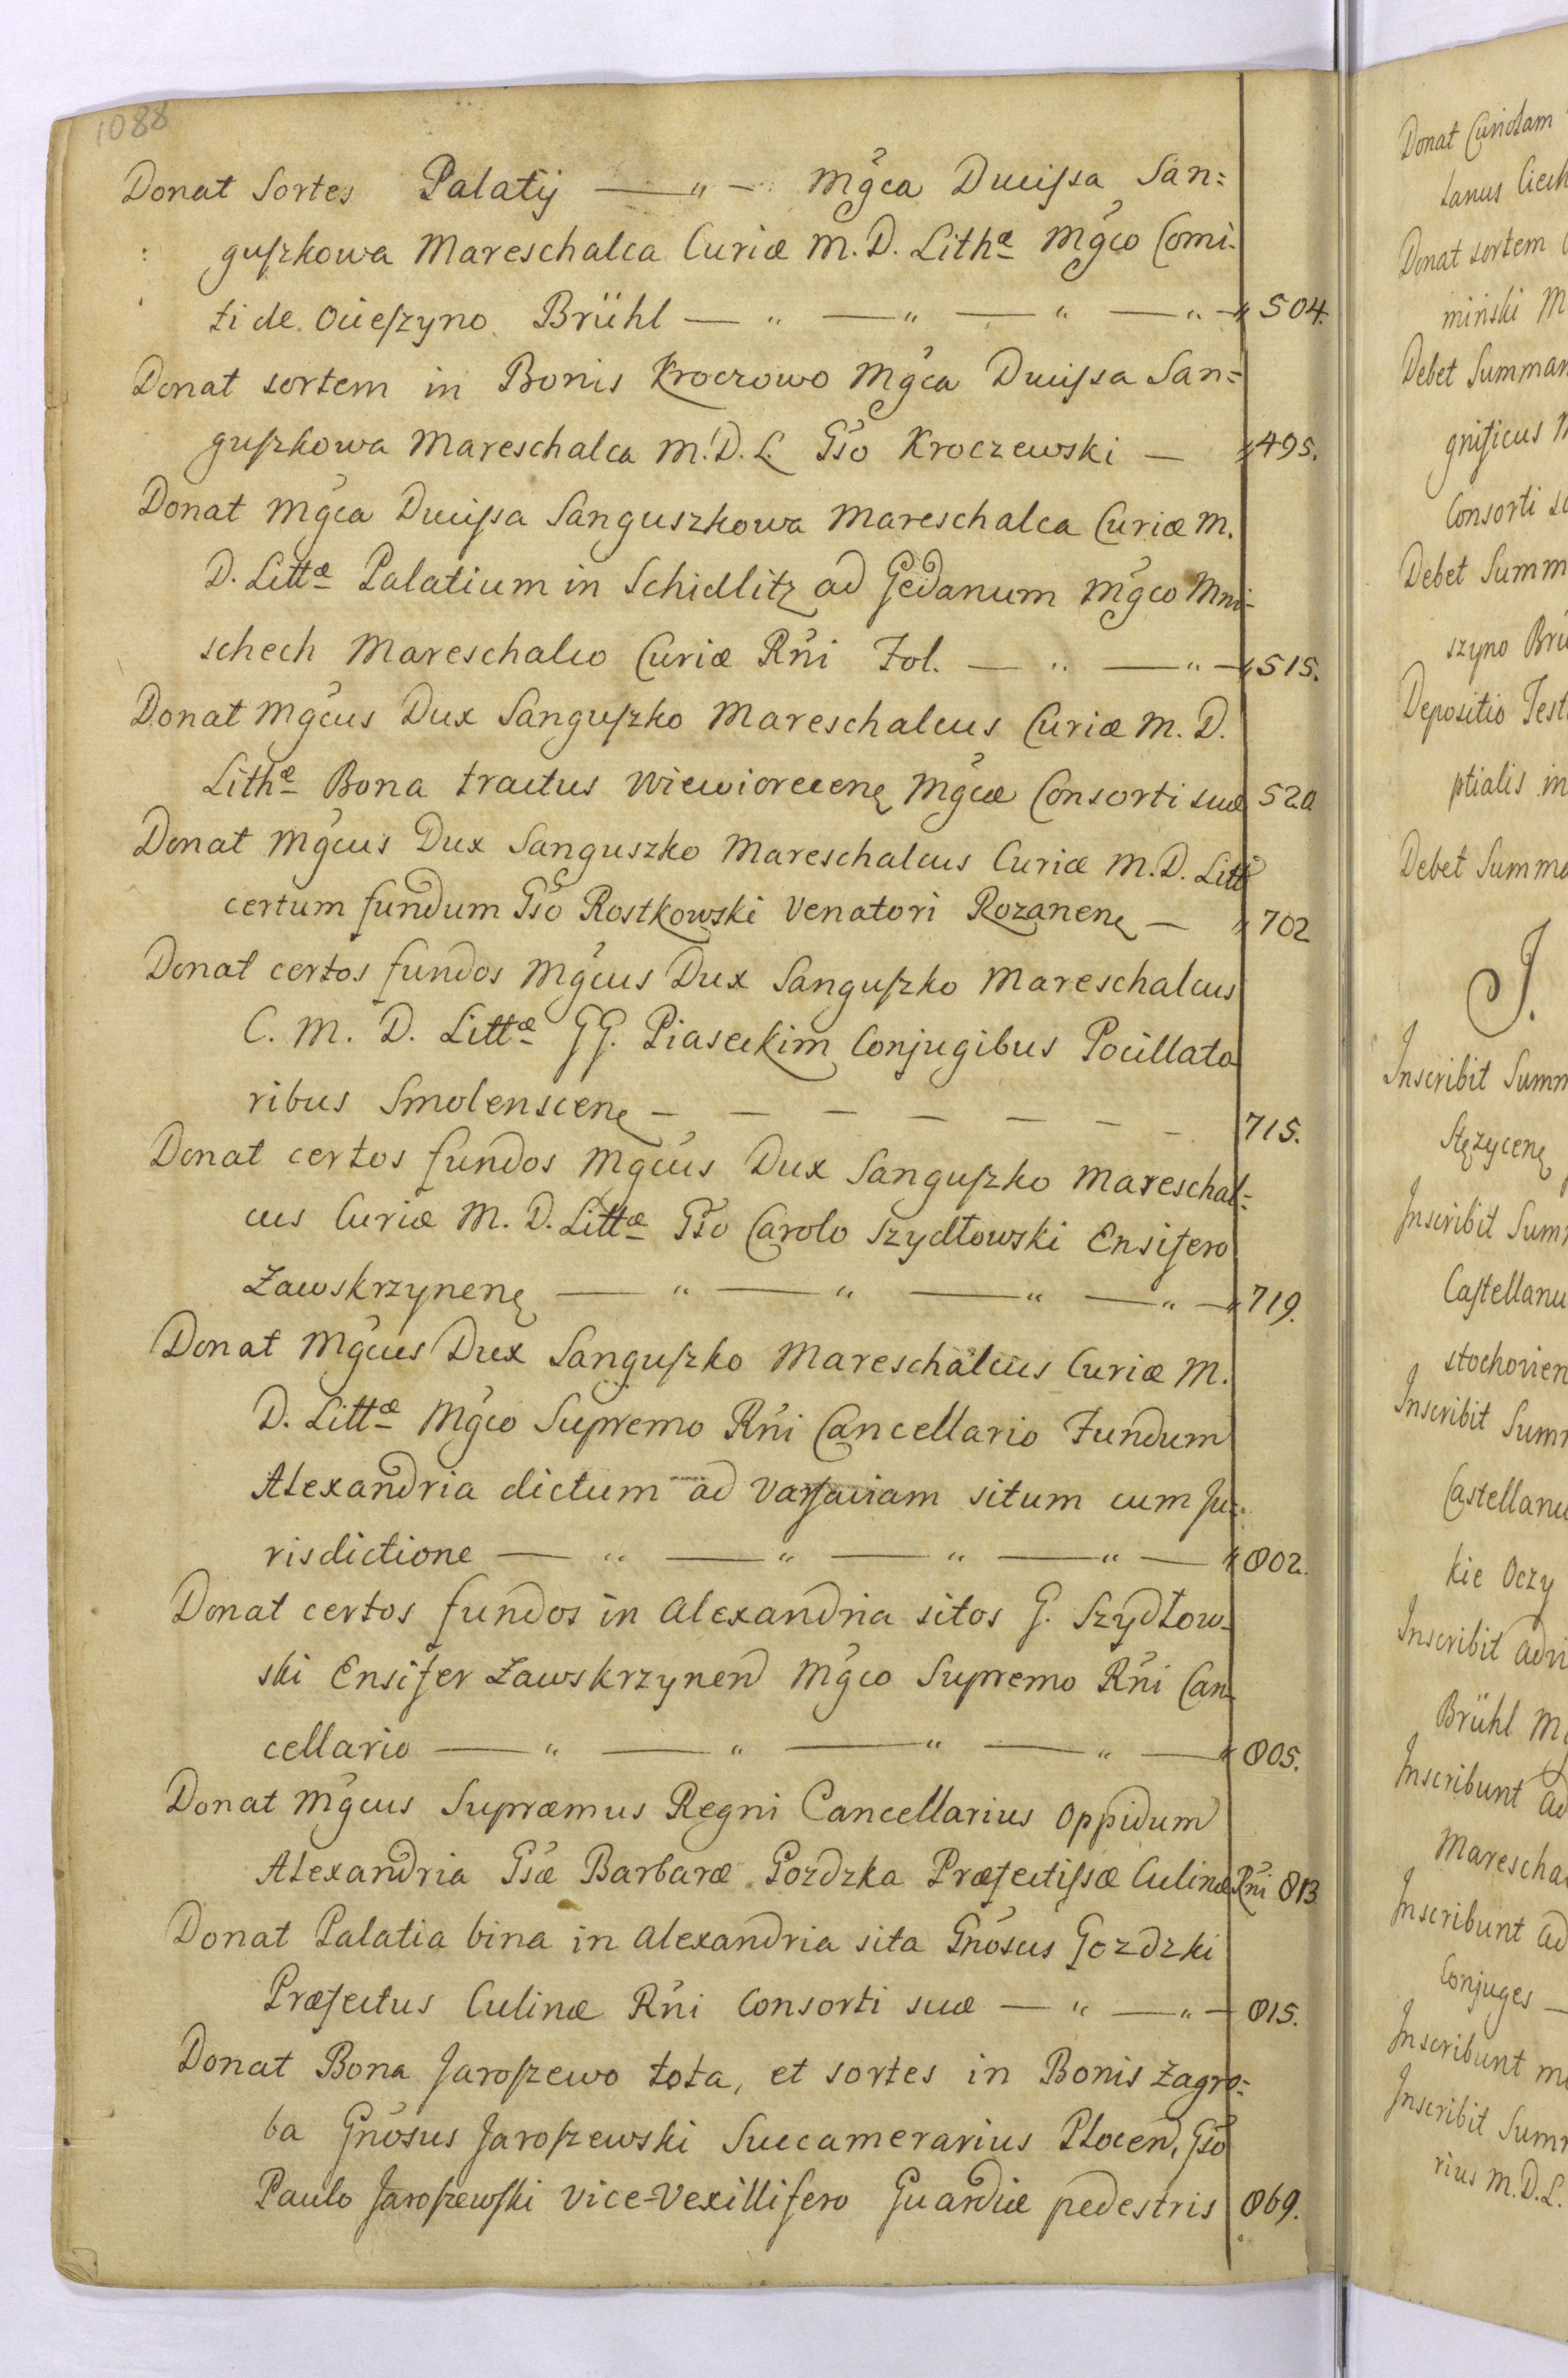 1088
Donat Sortes Palatij — „ — Mg̃ca Ducissa San=
guszkowa Mareschalca Curiæ M. D. Lithæ Mg̃co Comi-
ti de Ocieszyno Brühl — „ — „ — „ — „ — 504.
Donat sortem in Bonis Kroczowo Mg̃ca Ducissa San=
guszkowa Mareschalca M. D. L. Gso Kroczewski — 495.
Donat Mg̃ca Ducissa Sanguszkowa Mareschalca Curiæ M.
D. Littæ Palatium in Schidlitz ad Gedanum Mg̃co Mni-
schech Mareschalco Curiæ Rñi Fol. — „ — „ — 515.
Donat Mg̃cus Dux Sanguszko Mareschalcus Curiæ M. D.
Lithæ Bona tractus Wiewiorecenę Mg̃cæ Consorti suæ 520
Donat Mg̃cus Dux Sanguszko Mareschalcus Curiæ M. D. Litt
certum fundum Gso Rostkowski Venatori Rozanenę — 702
Donat certos fundos Mg̃cus Dux Sanguszko Mareschalcus
C. M. D. Littæ GG. Piaseckim Conjugibus Pocillato
ribus Smolenscenę — — — — — — — 715.
Donat certos fundos Mg̃cus Dux Sanguszko Mareschal=
cus Curiæ M. D. Littæ Gso Carolo Szydłowski Ensifero
Zawskrzynenę — „ — „ — „ — „ — 719.
Donat Mg̃cus Dux Sanguszko Mareschalcus Curiæ M.
D. Littæ Mg̃co Supremo Rñi Cancellario Fundum
Alexandria dictum ad Varsaviam situm cum Ju=
risdictione — „ — „ — „ — „ — 802.
Donat certos fundos in Alexandria sitos G. Szydłow-
ski Ensifer Zawskrzynen Mg̃co Supremo Rñi Can-
cellario — „ — „ — „ — „ — 805.
Donat Mg̃cus Supræmus Regni Cancellarius Oppidum
Alexandria Gsæ Barbaræ Gozdzka Præfectissæ Culinæ Rñi 813
Donat Palatia bina in Alexandria sita Gñosus Gozdzki
Præfectus Culinæ Rñi Consorti suæ — „ — „ — 815.
Donat Bona Jaroszewo tota, et sortes in Bonis Zagro=
ba Gñosus Jaroszewski Succamerarius Płocen, Gso
Paulo Jaroszewski Vice-Vexillifero Guardiæ pedestris 869.
Donat Curiolam
lanus Ciech
Donat sortem
miński M
Debet Summam
gnificus M
Consorti su
Debet Summ
szyno Brü
Depositio Test
ptialis in
Debet Summa
J.
Inscribit Summ
Stęzycenę
Inscribit Sum
Castellanu
stochovien
Inscribit Sum
Castellanu
kie Oczy
Inscribit advi
Brühl M
Inscribunt ad
Marescha
Inscribunt ad
Conjuges —
Inscribunt m
Inscribit Sum
rius M. D. L.